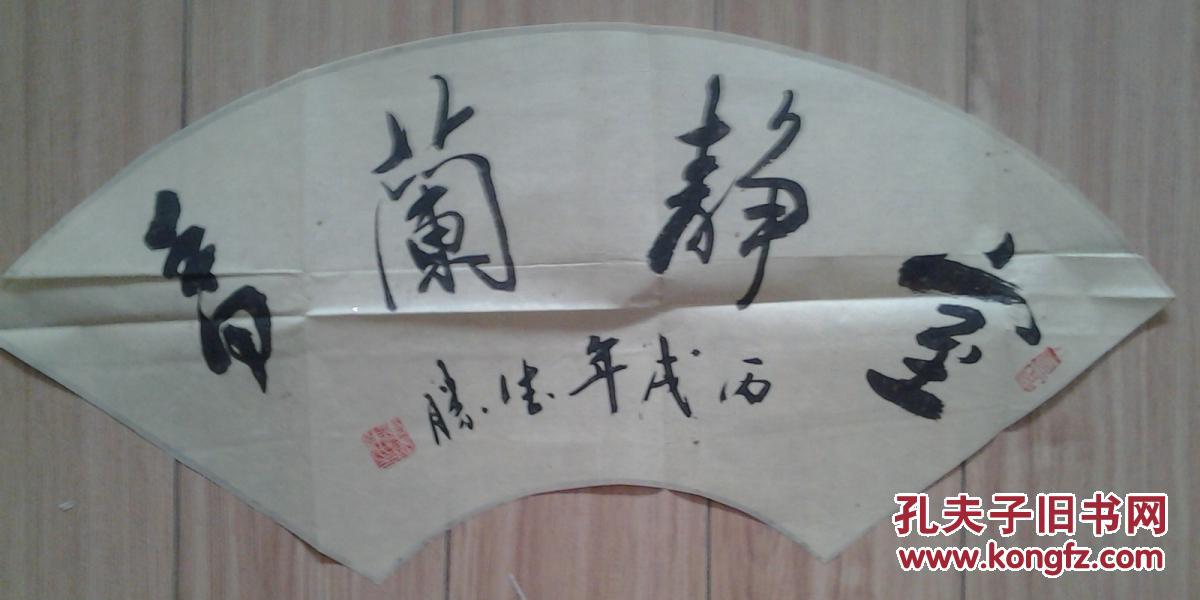 室静蘭香
丙戌年德勝
孔夫子旧书网
www.kongfz.com